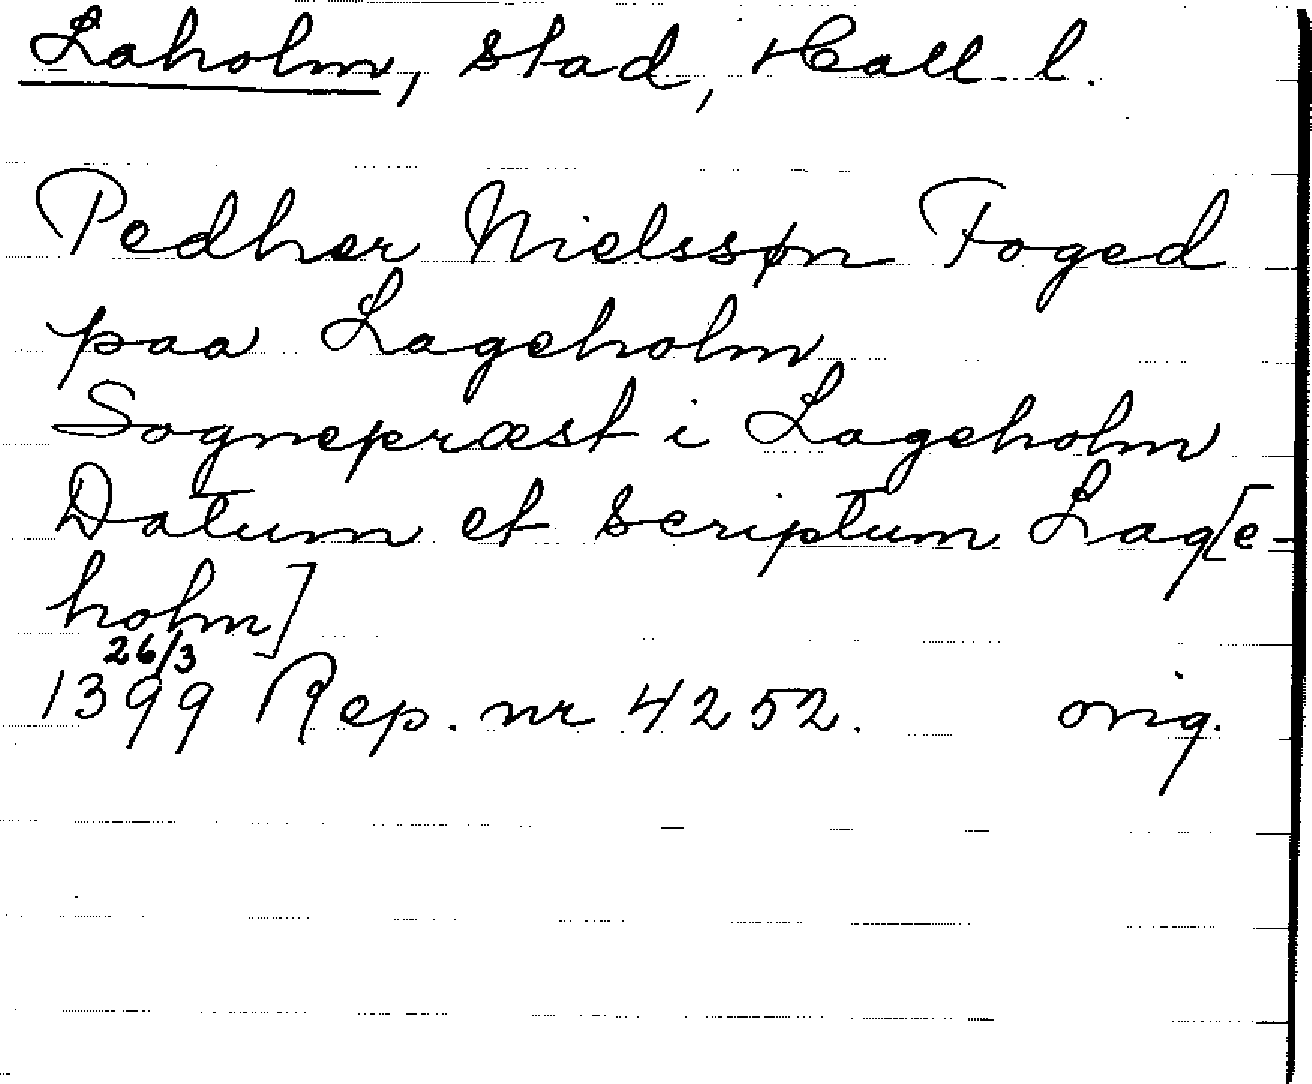 Laholm, stad, Hall. l.
Pedher Nielssøn Foged
paa Lageholm
Sognepræst i Lageholm
Datum et scriptum Lag[e-
holm]
26/3
1399 Rep. nr 4252. orig.